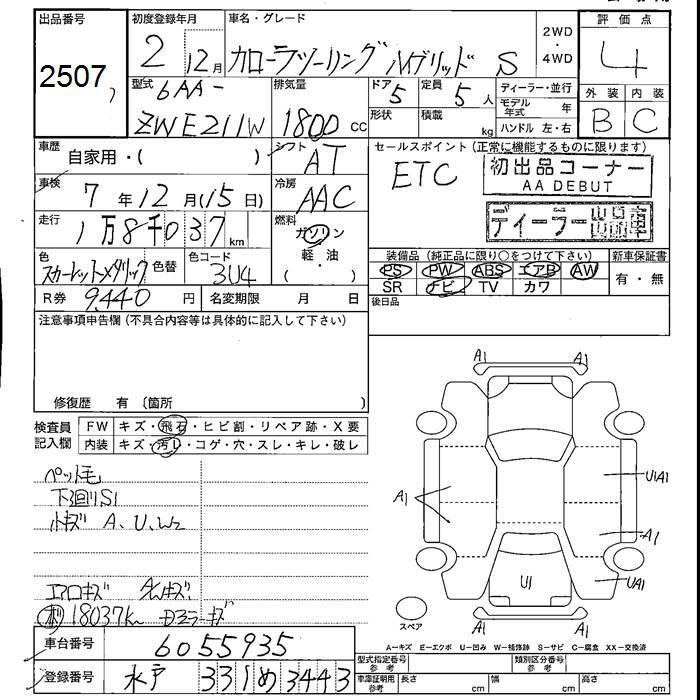 出品番号
2507
初度登録年月
2 12月
車名・グレード
カローラツーリング ハイブリッド S
2WD
・
4WD
評価点
4
外装 内装
B C
型式
6AA-
ZWE211W
排気量
1800 CC
ドア 5
定員 5 人
形状
積載 kg
ディーラー・並行
モデル年式 年
ハンドル 左・右
車歴
自家用・( )
シフト
AT
車検
7年12月(15日)
冷房
AAC
走行
1万8千037km
燃料
ガソリン
軽・油
( )
色
スカーレットメタリック
色替
色コード
3U4
R券 9,440 円
名変期限 月 日
セールスポイント(正常に機能するものに限ります)
ETC
初出品コーナー
AA DEBUT
ディーラー出品車
装備品(純正品に限り○をつけて下さい)
新車保証書
PS PW ABS エアB AW
SR ナビ TV カワ
有・無
後日品
注意事項申告欄(不具合内容等は具体的に記入して下さい)
修復歴 有 〔箇所 〕
検査員
記入欄
FW キズ・飛石・ヒビ割・リペア跡・X要
内装 キズ・汚レ・コゲ・穴・スレ・キレ・破レ
ペット毛
下廻りS1
小キズ A、U、W2
エアロキズ
18037km ドアミラーキズ
A1 A1
A1
U1A1
A1
U1
UA1
A1 A1
スペア
A―キズ E―エクボ U―凹み W―補修跡 S―サビ C―腐食 XX―交換済
車台番号 6055935
登録番号 水戸 331 め 3443
型式指定番号
参考
類別区分番号
参考
車庫証明用
参考
長さ cm 幅 cm 高さ cm